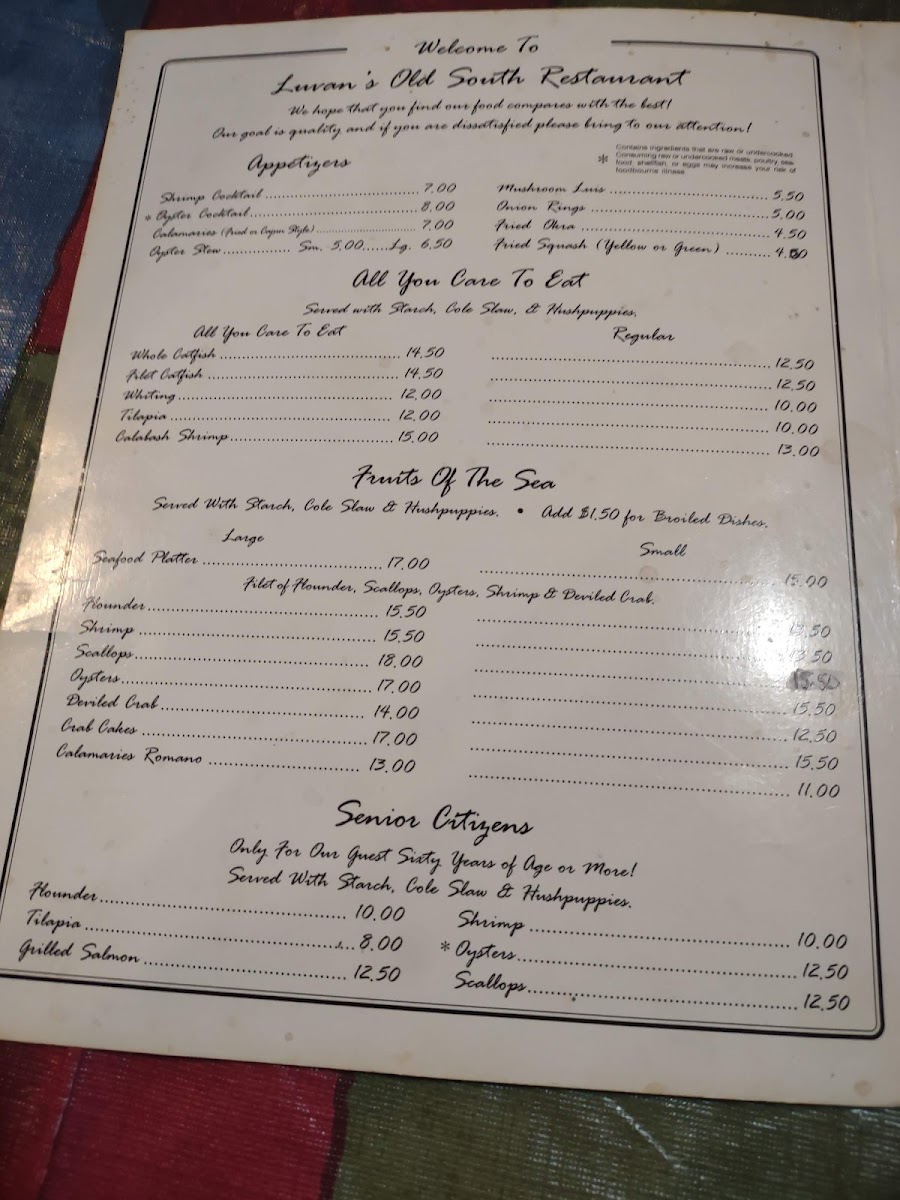 Welcome To
Luvan's Old South Restaurant
We hope that you find our food compares with the best!
Our goal is quality and if you are dissatisfied please bring to our attention!
Appetizers
* Contains ingredients that are raw or undercooked.
Consuming raw or undercooked meats, poultry, sea-
food, shellfish, or eggs may increase your risk of
foodbourne illness
Shrimp Cocktail 7.00
* Oyster Cocktail 8.00
Calamaries (Fried or Cajun Style) 7.00
Oyster Stew Sm. 5.00 Lg. 6.50
Mushroom Luis 5.50
Onion Rings 5.00
Fried Okra 4.50
Fried Squash (Yellow or Green)
All You Care To Eat
Served with Starch, Cole Slaw, & Hushpuppies.
All You Care To Eat Regular
Whole Catfish 14.50 12.50
Filet Catfish 14.50 12.50
Whiting 12.00 10.00
Tilapia 12.00 10.00
Calabash Shrimp 15.00 13.00
Fruits Of The Sea
Served With Starch, Cole Slaw & Hushpuppies. • Add $1.50 for Broiled Dishes.
Large Small
Seafood Platter 17.00 15.00
Filet of Flounder, Scallops, Oysters, Shrimp & Deviled Crab.
Flounder 15.50 13.50
Shrimp 15.50 13.50
Scallops 18.00 15.50
Oysters 17.00 15.50
Deviled Crab 14.00 12.50
Crab Cakes 17.00 15.50
Calamaries Romano 13.00 11.00
Senior Citizens
Only For Our Guest Sixty Years of Age or More!
Served With Starch, Cole Slaw & Hushpuppies.
Flounder 10.00
Tilapia 8.00
Grilled Salmon 12.50
Shrimp 10.00
* Oysters 12.50
Scallops 12.50